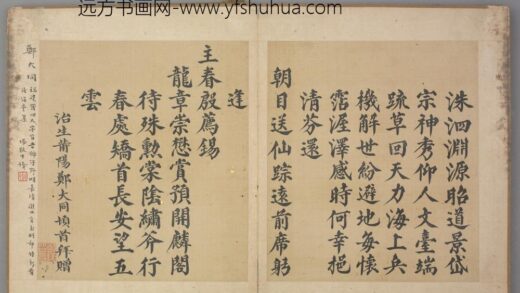 远方书画网- www.yfshuhua.com
洙泗淵源昭道景岱
宗神秀仰人文臺端
疏草回天力海上兵
機解世紛避地每懷
霑渥澤感時何幸挹
清芬還
朝日送仙踪遠前席躬
逢
主春殷薦錫
龍章崇懋賞預開麟閣
待殊勲棠陰繡斧行
春處矯首長安望五
雲
治生莆陽鄭大同頓首拜贈
鄭大同